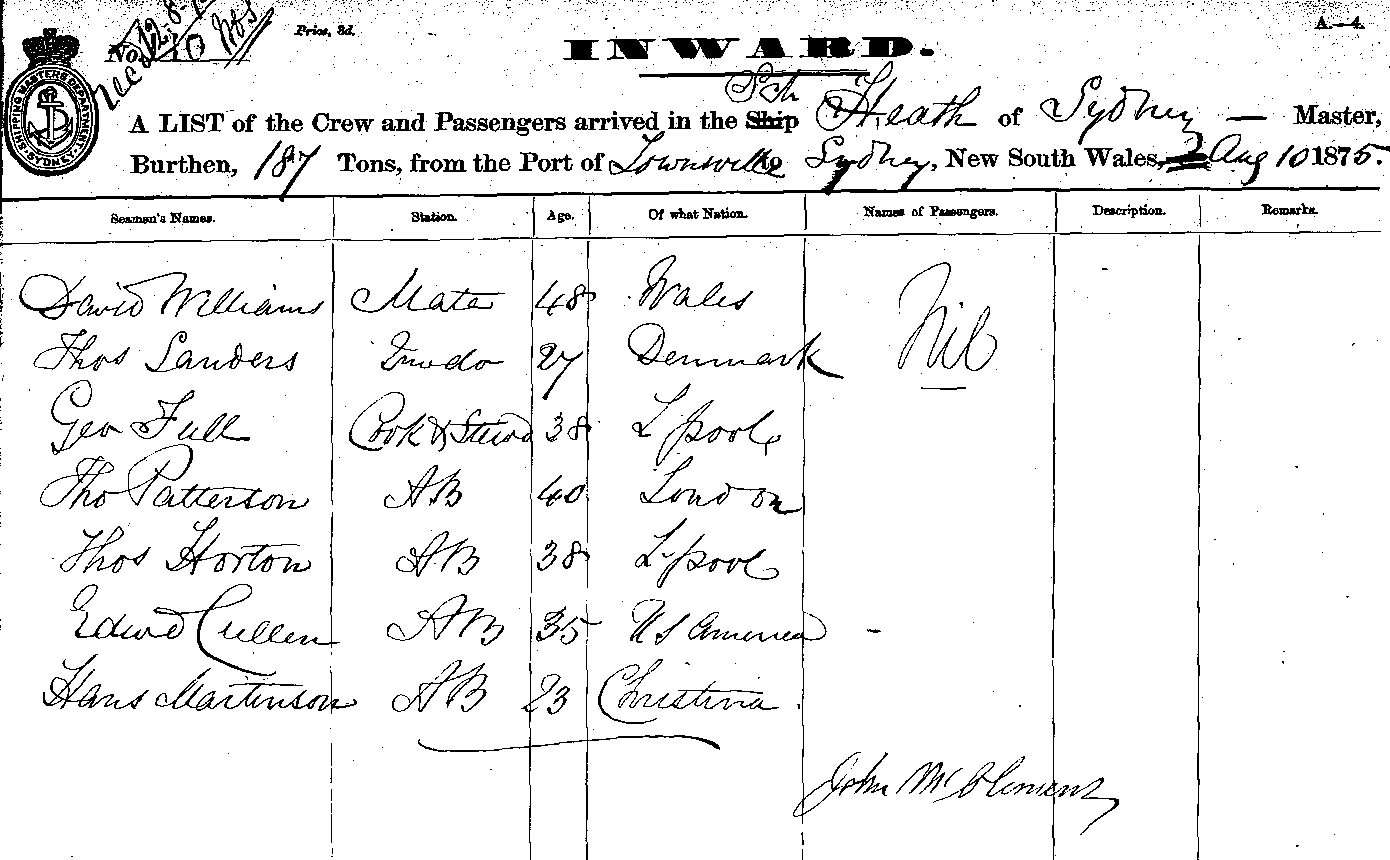 No. 10
Price, 3d.
A.—4.
INWARD.
SHIPPING MASTERS DEPARTMENT SYDNEY
Sch
A LIST of the Crew and Passengers arrived in the Ship Heath of Sydney — Master,
Burthen, 187 Tons, from the Port of Townsville to Sydney, New South Wales, Aug 10 1875.
Seamen's Names. Station. Age. Of what Nation. Names of Passengers. Description. Remarks.
David Williams Mate 48 Wales Nil
Thos Sanders 27 Denmark
Geo Full Cook & Stewd 38 L pool
Tho Patterson AB 40 London
Thos Horton AB 38 L pool
Edwd Cullen AB 35 US America -
Hans Martinson AB 23 Christina
John McClement